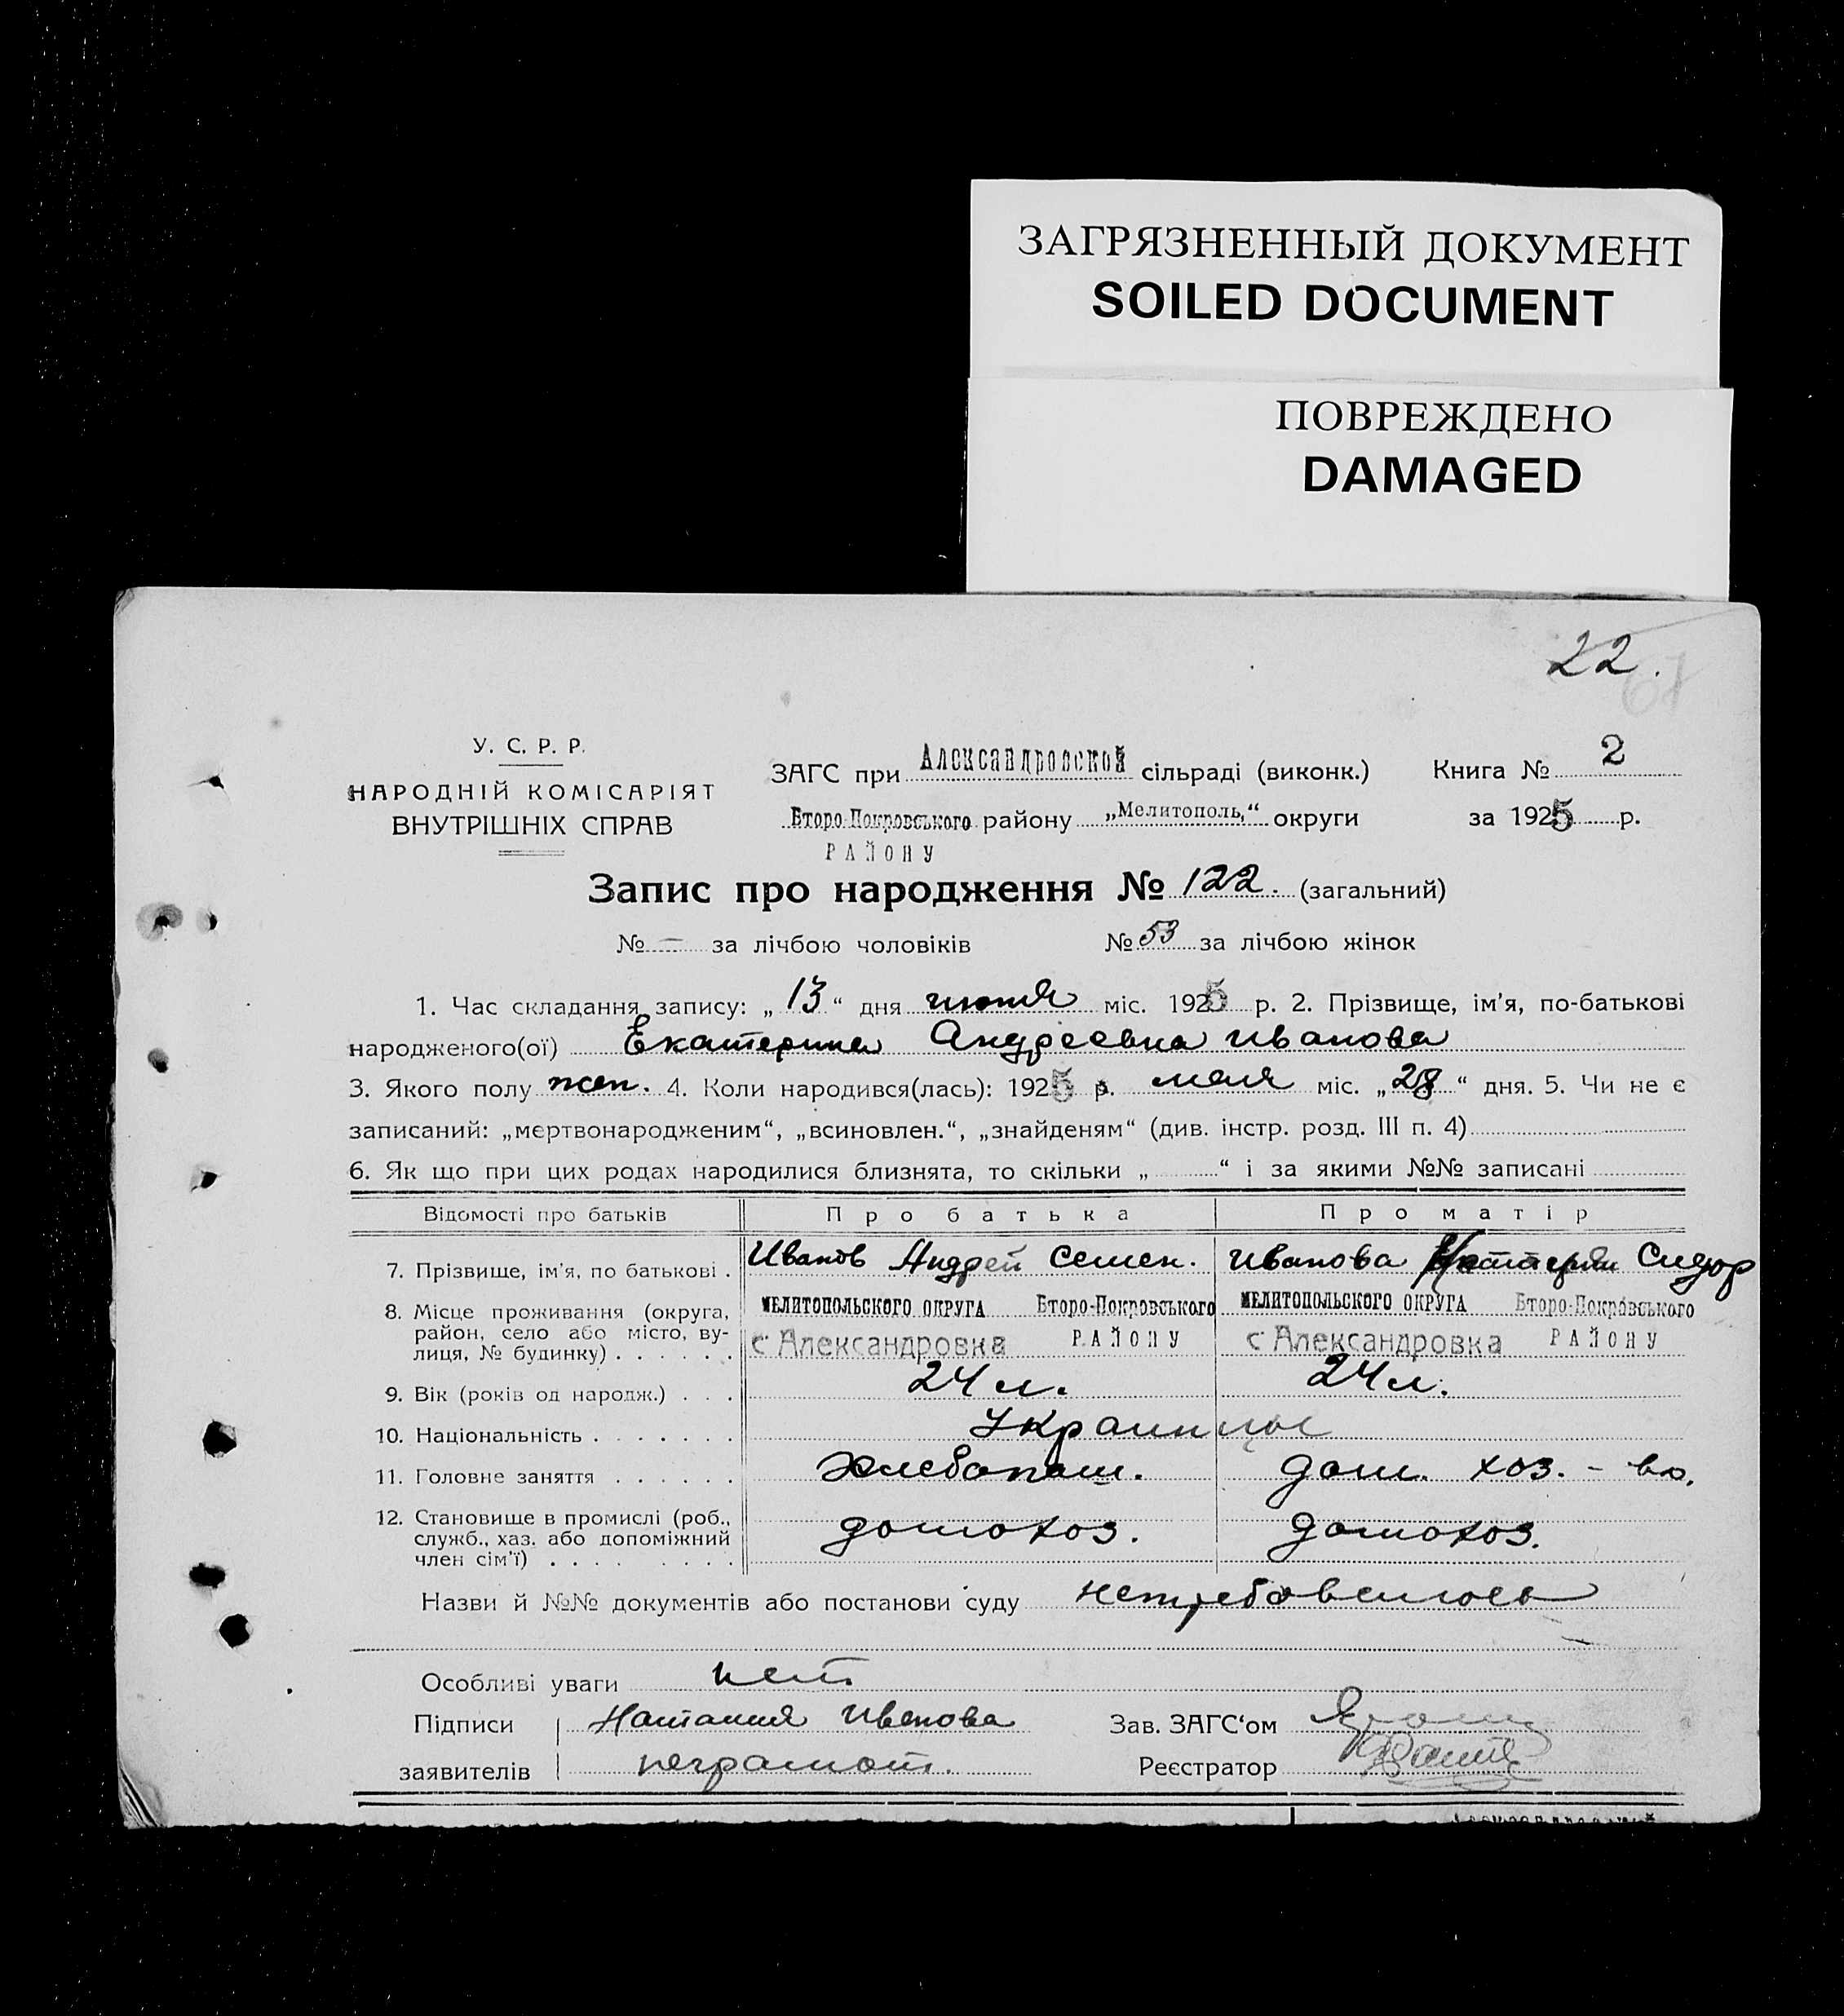 ЗАГРЯЗНЕННЫЙ ДОКУМЕНТ
SOILED DOCUMENT
ПОВРЕЖДЕНО
DAMAGED
22.
67
У. С. Р. Р.
НАРОДНІЙ КОМІСАРІЯТ
ВНУТРІШНІХ СПРАВ
ЗАГС при Александровской сільраді (виконк.) Книга № 2
Второ-Покровського району „Мелитополь,“ округи за 1925 р.
РАЙОНУ
Запис про народження № 122. (загальний)
№ – за лічбою чоловіків № 53 за лічбою жінок
1. Час складання запису: „13“ дня июня міс. 1925 р. 2. Прізвище, ім’я, по-батькові
народженого(ої) Екатерина Андреевна Иванова
3. Якого полу жен. 4. Коли народився(лась): 1925 р. мая міс. „28“ дня. 5. Чи не є
записаний: „мертвонародженим“, „всиновлен.“, „знайденям“ (див. інстр. розд. III п. 4)
6. Як що при цих родах народилися близнята, то скільки „ “ і за якими №№ записані
Відомості про батьків Про батька Про матір
7. Прізвище, ім’я, по батькові . Иванов Андрей Семен. Иванова Сидор
8. Місце проживання (округа, МЕЛИТОПОЛЬСКОГО ОКРУГА Второ-Покровського МЕЛИТОПОЛЬСКОГО ОКРУГА Второ-Покровського
район, село або місто, ву-
лиця, № будинку) . . . . . . с Александровка РАЙОНУ с Александровка РАЙОНУ
9. Вік (років од народж.) . . . 24 л. 24 л.
10. Національність . . . . . . . Украинцы
11. Головне заняття . . . . . . Хлебопаш. дом. хоз. - во.
12. Становище в промислі (роб.,
служб., хаз. або допоміжний домохоз. домохоз.
член сім’ї) . . . . . . . . .
Назви й №№ документів або постанови суду нетребовалось
Особливі уваги нет
Підписи Наталия Иванова Зав. ЗАГС‘ом
заявителів неграмот. Реєстратор